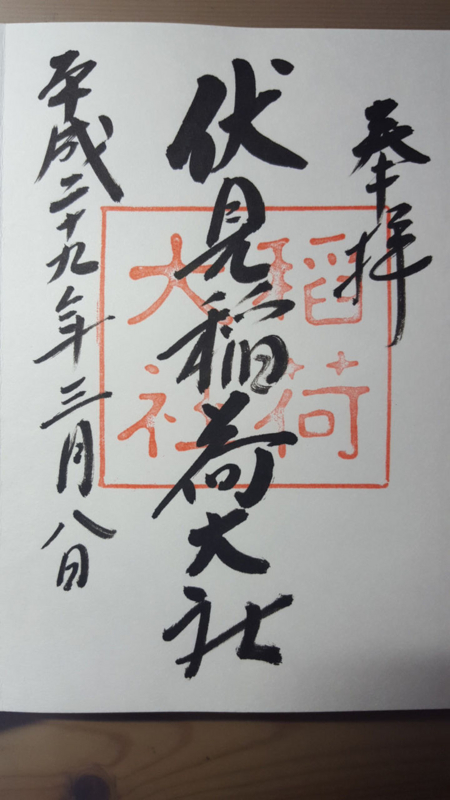 奉拝
稲荷
大社
伏見稲荷大社
平成二十九年三月八日